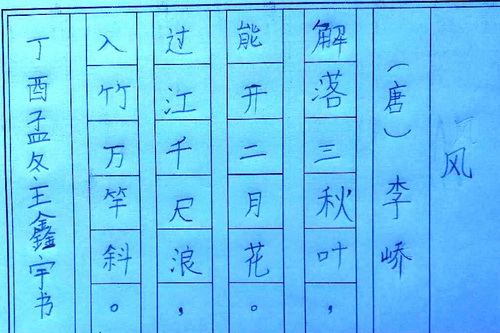 风
（唐）李峤
解落三秋叶，
能开二月花。
过江千尺浪，
入竹万竿斜。
丁酉孟冬王鑫宇书